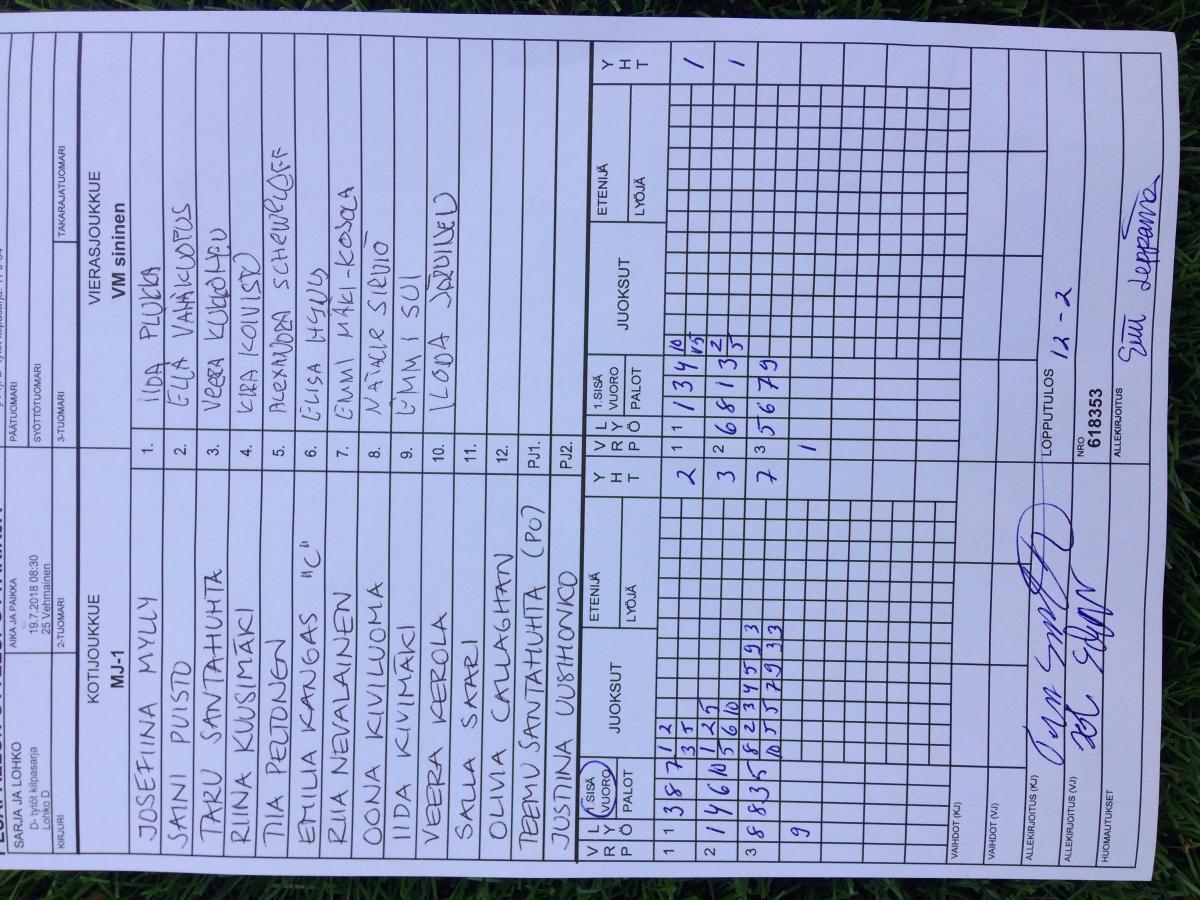 SARJA JA LOHKO
D- tytöt kilpasarja
Lohko D
AIKA JA PAIKKA
19.7.2018 08:30
25 Vehmainen
PÄÄTUOMARI
SYÖTTÖTUOMARI
KIRJURI
2-TUOMARI
3-TUOMARI
TAKARAJATUOMARI
KOTIJOUKKUE
MJ-1
VIERASJOUKKUE
VM sininen
JOSEFIINA MYLLY 1. IIDA PLUKKA
SAINI PUISTO 2. ELLA
TARU SANTAHUHTA 3. VEERA
RIINA KUUSIMÄKI 4. KIRA KOIVISTO
TIIA PELTONEN 5. ALEXANDRA
EMILIA KANGAS "C" 6. ELISA
RIIA NEVALAINEN 7. EMMI MÄKI-KOJOLA
OONA KIVILUOMA 8.
IIDA KIVIMÄKI 9. EMMI SUI
VEERA KEROLA 10.
SALLA SAARI 11.
OLIVIA CALLAGHAN 12.
TEEMU SANTAHUHTA (PO7) PJ1.
JUSTIINA UUSIHONKO PJ2.
V R P L Y Ö 1.SISÄ VUORO PALOT JUOKSUT ETENIJÄ LYÖJÄ Y H T V R P L Y Ö 1.SISÄ VUORO PALOT JUOKSUT ETENIJÄ LYÖJÄ Y H T
1 1 3 8 7 1 2 2 1 1 1 3 4 10 1
3 5
2 1 4 6 10 1 2 5 3 2 6 8 1 3 2 1
5 6 10 5
3 8 8 3 5 8 2 3 4 5 9 3 7 3 5 6 7 9
10 5 5 7 9 3 3
9 1
VAIHDOT (KJ)
VAIHDOT (VJ)
ALLEKIRJOITUS (KJ)
LOPPUTULOS
12 - 2
ALLEKIRJOITUS (VJ)
NRO
618353
HUOMAUTUKSET
ALLEKIRJOITUS